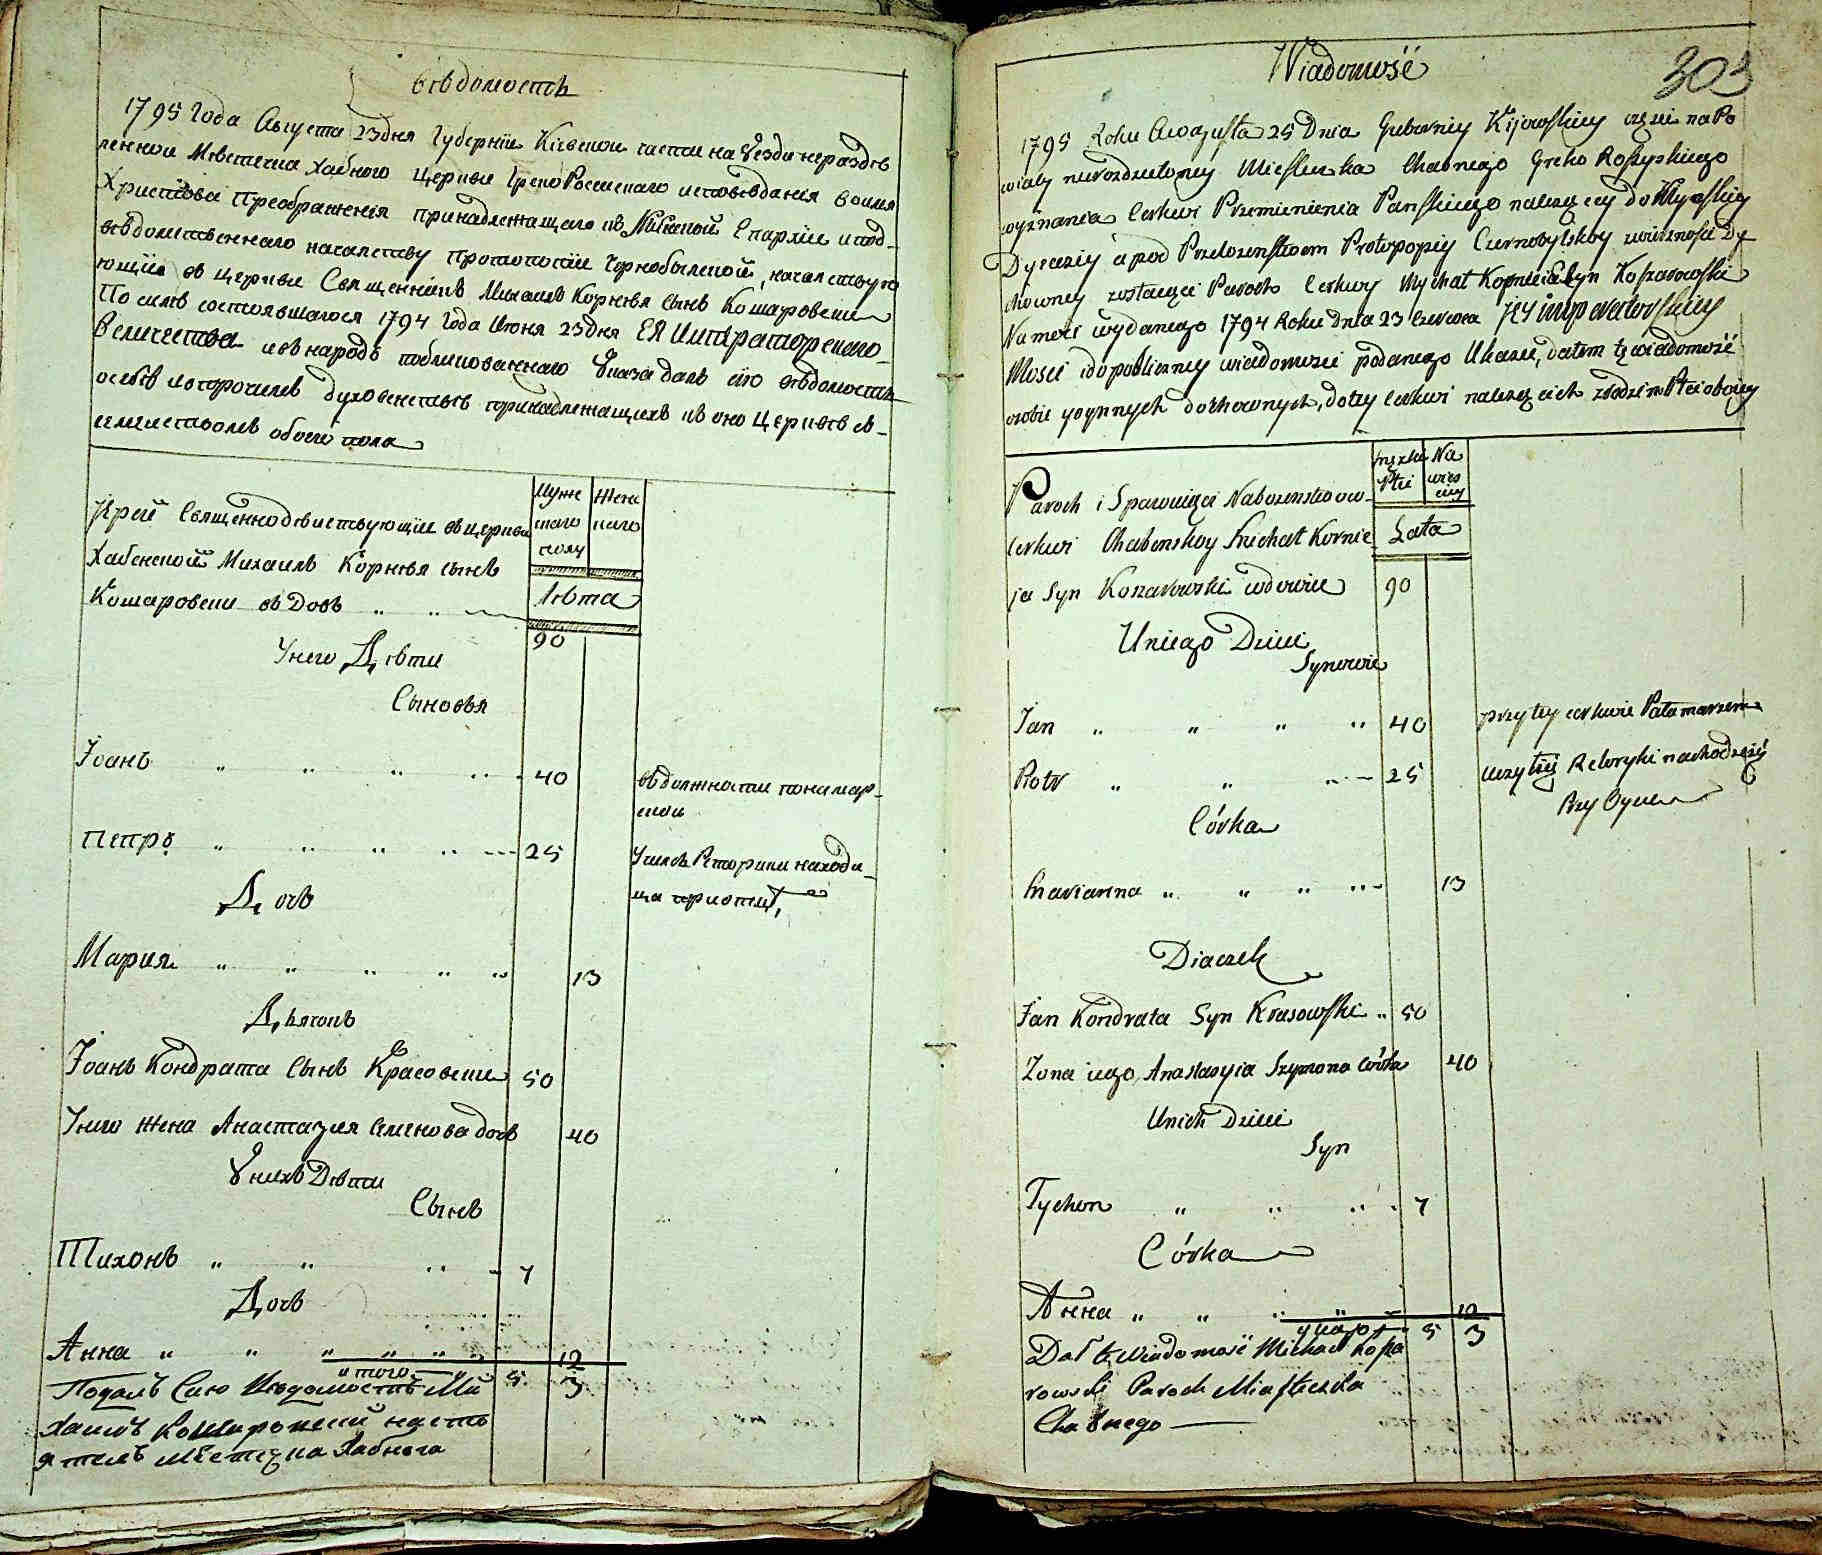 вѣдомость
1795 Года Августа 23 дня Губернїи Кіевскои части на Уезди нераздѣ
ленной Мѣстечка Хабного Церкви Греко Россискаго исповѣданія во имя
Христова Преображенія принадлежащаго къ Минской Епархїи и под-
вѣдомственнаго началству протопопїи Чернобылской, началствую
ющїи въ церкви Священникъ Михаилъ Корнѣя сынъ Кошаровски
По силѣ состоявшагося 1794 Года Июня 23 дня ЕЯ Императорскаго
Величества и въ народъ публикованнаго Указа далъ сїю вѣдомость
особѣ и которомъ духовенствѣ принадлежащихъ къ оно Церквѣ съ
семействомъ обоего пола
Мужескаго полу
Женскаго
Лѣта
Їереи Священнодѣиствующїи въ церкви
Хабенской Михаилъ Корнѣя сынъ
Кошаровски въдовъ " " 90
У него Дѣти
Сыновья
Іоанъ " " " " 40 въ должности пономар-
скои
Петрo " " " " 25 Училсѣ Реторики находи-
ца при отцу
Дочь
Мария " " " " " 13
Дьякъ
Іоанъ Кондрата Сынъ Красовски 50
У него Жена Анастазия Семенова дочь 40
У нихъ Дѣти
Сынъ
Тихонъ " " " 7
Дочь
Анна " " " " " " 12
итого 5 3
Подалъ Сию Вѣдомость Ми
хаилъ Кошаровский насто
ятель мѣстечка Хабного
Wiadomość
303
1795 Roku Awgusta 25 Dnia Guberniy Kijowskiey części na Po
wiaty nierozdzieloney Miesteczka Chabniego Greko Rossyskiego
wyznania Cerkwi Przemienienia Pańskiego należący do Mińskiey
Dyecezij a pod Przełożeństwem Protopopiy Czernobylskoy zwierzności Du
chowney zostaiący Paroch Cerkwy Mychał Kornieia Syn Koszarowski
Na mocy wydanego 1794 Roku Dnia 23 Czerwca JEY imperatorskiey
Mości i do publiczney wiadomości podanego Ukazu, dałem tę wiadomość
osobie y o ynnych duchownych, do tey cerkwi należących z rodzin Płci oboiey
męzkiey Płci
Niewieściey
Lata
Paroch i Sprawuiący Nabożenstwo w
Cerkwi Chabenskoy Michał Kornie
ja Syn Koszarowski wdowiec 90
U niego Dzieci
Synowie
Jan " " " " 40 przy tey cerkwie Palamarzem
Piotr " " " 25 uczył się Retoryki nachodzący
Przy Oycu
Córka
Marianna " " " " 13
Diaczek
Jan Kondrata Syn Krasowski " 50
Żona iego Anastazyia Szymona córka 40
U nich Dzieci
Syn
Tychon " " " 7
Córka
Анна " " " " 12
5 3
Dał tę Wiadomość Michał Kosza
rowski Paroch Miasteczka
Chabnego